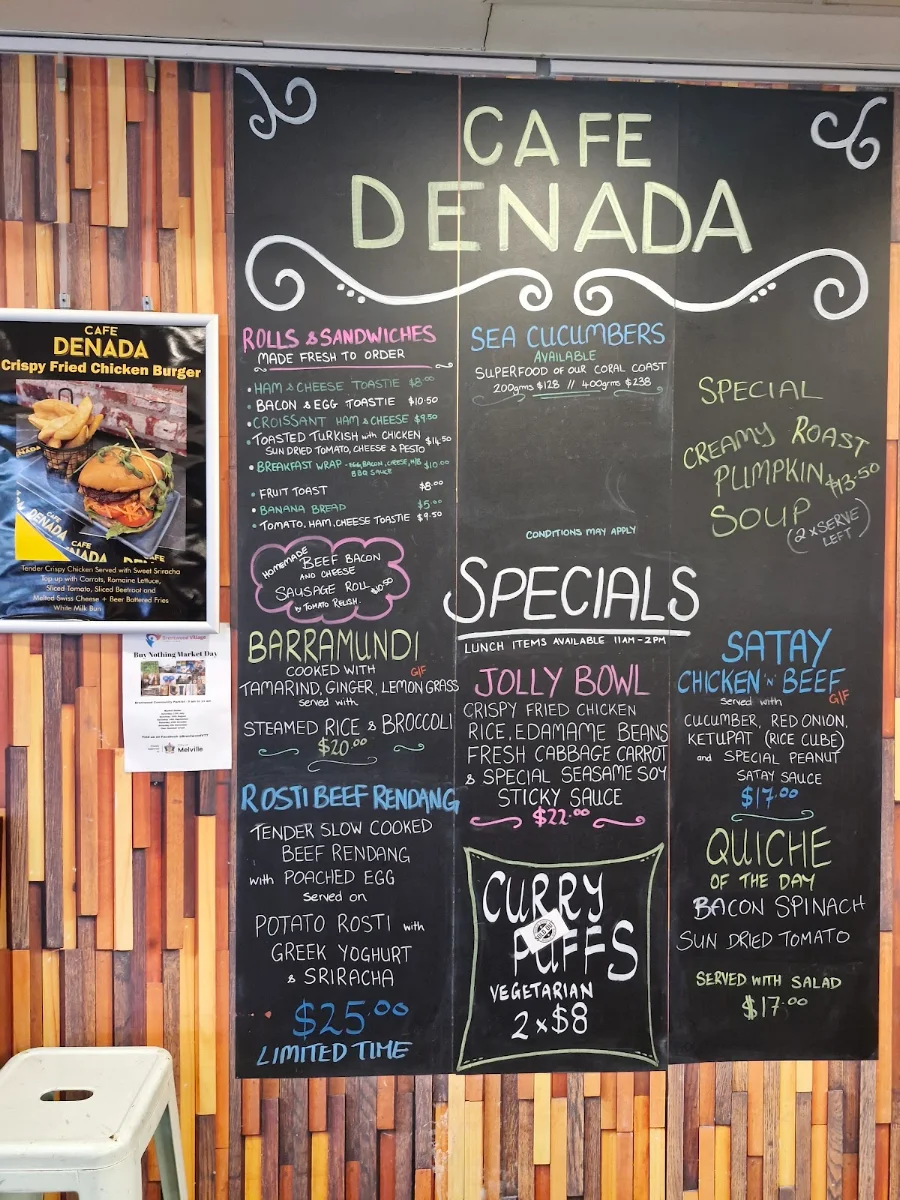 CAFE
DENADA
ROLLS & SANDWICHES
MADE FRESH TO ORDER
• HAM & CHEESE TOASTIE $8.00
• BACON & EGG TOASTIE $10.50
• CROISSANT HAM & CHEESE $9.50
• TOASTED TURKISH with CHICKEN $14.50
SUN DRIED TOMATO, CHEESE & PESTO
• BREAKFAST WRAP - EGG, BACON, CHEESE, H/B $10.00
BBQ SAUCE
• FRUIT TOAST $8.00
• BANANA BREAD $5.00
• TOMATO, HAM, CHEESE TOASTIE $9.50
HOMEMADE BEEF BACON
AND CHEESE
SAUSAGE ROLL $10.50
TOMATO RELISH.
BARRAMUNDI
COOKED WITH G/F
TAMARIND, GINGER, LEMON GRASS
served with
STEAMED RICE & BROCCOLI
$20.00
ROSTI BEEF RENDANG
TENDER SLOW COOKED
BEEF RENDANG
with POACHED EGG
Served on
POTATO ROSTI with
GREEK YOGHURT
& SRIRACHA
$25.00
LIMITED TIME
SEA CUCUMBERS
AVAILABLE
SUPERFOOD OF OUR CORAL COAST
200grms $128 // 400grms $238
CONDITIONS MAY APPLY
SPECIALS
LUNCH ITEMS AVAILABLE 11AM - 2PM
JOLLY BOWL
CRISPY FRIED CHICKEN
RICE, EDAMAME BEANS
FRESH CABBAGE CARROT
& SPECIAL SEASAME SOY
STICKY SAUCE
$22.00
CURRY
PUFFS
VEGETARIAN
2 x $8
SPECIAL
CREAMY ROAST
PUMPKIN $13.50
SOUP
(2 x SERVE
LEFT)
SATAY
CHICKEN 'N' BEEF
served with G/F
CUCUMBER, RED ONION,
KETUPAT (RICE CUBE)
and SPECIAL PEANUT
SATAY SAUCE
$17.00
QUICHE
OF THE DAY
BACON SPINACH
SUN DRIED TOMATO
SERVED WITH SALAD
$17.00
CAFE
DENADA
Crispy Fried Chicken Burger
CAFE
DENADA
Tender Crispy Chicken Served with Sweet Sriracha
Top up with Carrots, Romaine Lettuce,
Sliced Tomato, Sliced Beetroot and
Melted Swiss Cheese + Beer Battered Fries
White Milk Bun
Buy Nothing Market Day
Melville